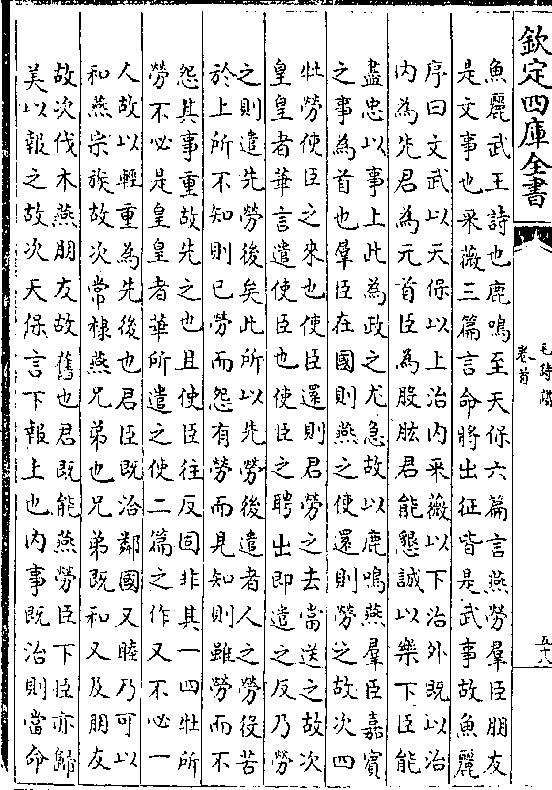 欽定四庫全書
毛詩譜
卷首
五十八
魚麗武王詩也鹿鳴至天保六篇言燕勞羣臣朋友
是文事也采薇三篇言命將出征皆是武事故魚麗
序曰文武以天保以上治内采薇以下治外既以治
内為先君為元首臣為股肱君能懇誠以樂下臣能
盡忠以事上此為政之尤急故以鹿鳴燕羣臣嘉賓
之事為首也羣臣在國則燕之使還則勞之故次四
牡勞使臣之來也使臣還則君勞之去當送之故次
皇皇者華言遣使臣也使臣之聘出即遣之反乃勞
之則遣先勞後矣此所以先勞後遣者人之勞役苦
於上所不知則已勞而怨有勞而見知則雖勞而不
怨其事重故先之也且使臣往反固非其一四牡所
勞不必是皇皇者華所遣之使二篇之作又不必一
人故以輕重為先後也君臣既洽鄰國又睦乃可以
和燕宗族故次常棣燕兄弟也兄弟既和又及朋友
故次伐木燕朋友故舊也君既能燕勞臣下臣亦歸
美以報之故次天保言下報上也内事既治則當命